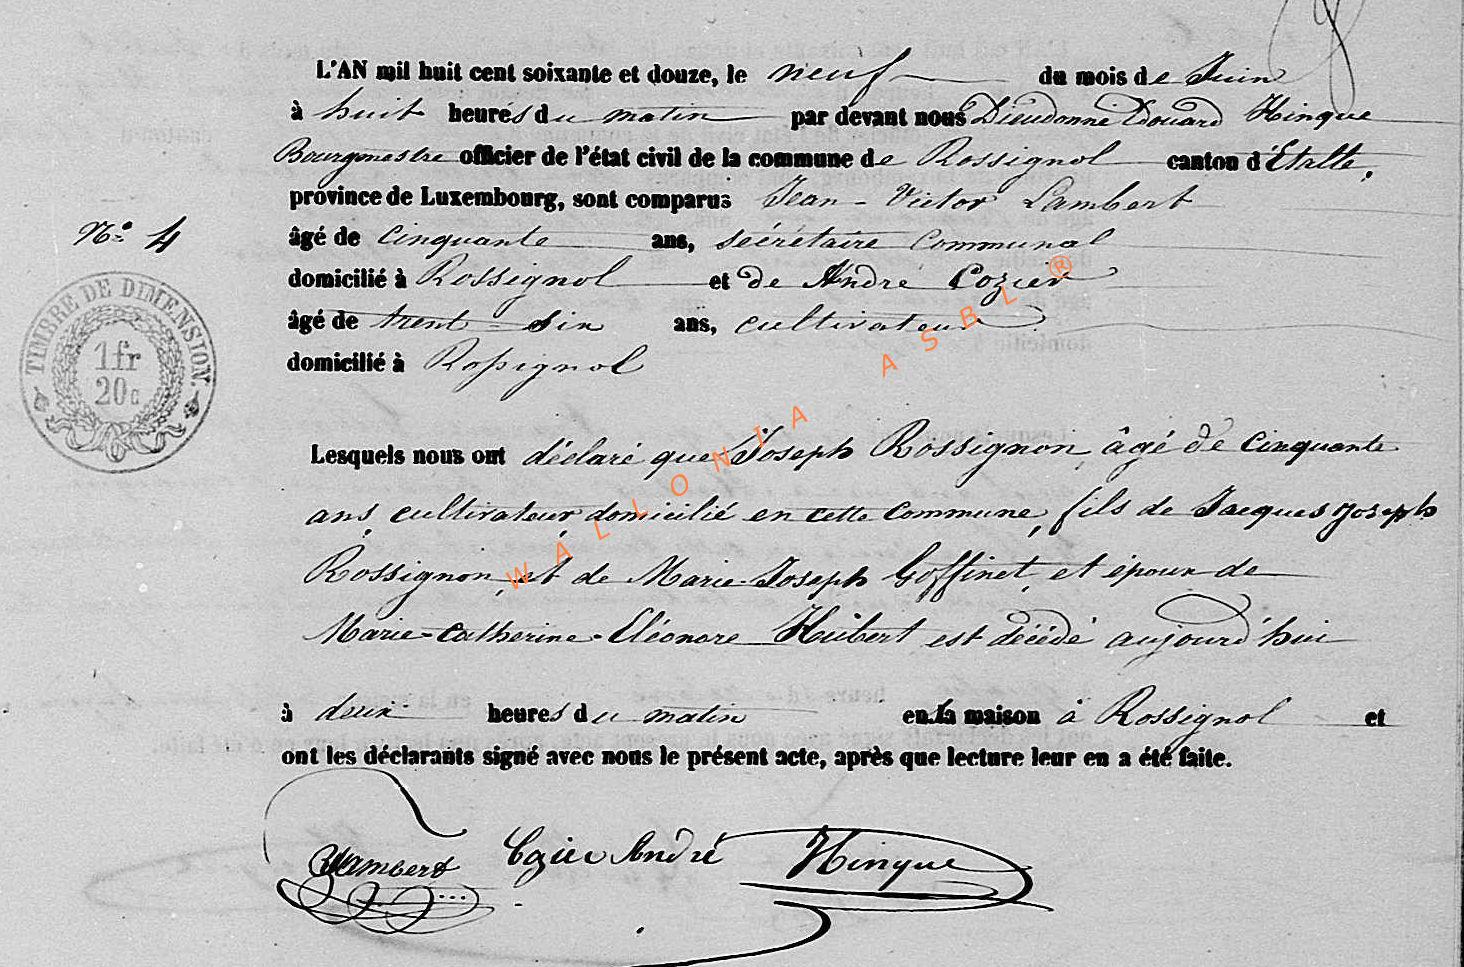 L'AN mil huit cent soixante et douze, le neuf du mois de Juin
à huit heures du matin par devant nous Dieudonné Edouard Hinque
Bourgmestre officier de l'état civil de la commune de Rossignol canton d'Etalle,
province de Luxembourg, sont comparus Jean-Victor Lambert
N° 4
âgé de cinquante ans, secrétaire communal
domicilié à Rossignol et de André Cozier
âgé de trent-six ans, cultivateur
domicilié à Rossignol
TIMBRE DE DIMENSION.
1fr
20c
Lesquels nous ont déclaré que Joseph Rossignon, âgé de cinquante
ans, cultivateur domicilié en cette commune, fils de Jacques Joseph
Rossignon, et de Marie-Joseph Goffinet, et époux de
Marie-Catherine-Eléonore Hubert est décédé aujourd'hui
à deux heures du matin en sa maison à Rossignol et
ont les déclarants signé avec nous le présent acte, après que lecture leur en a été faite.
Lambert Cozier André Hinque
WALLONIA ASBL ®